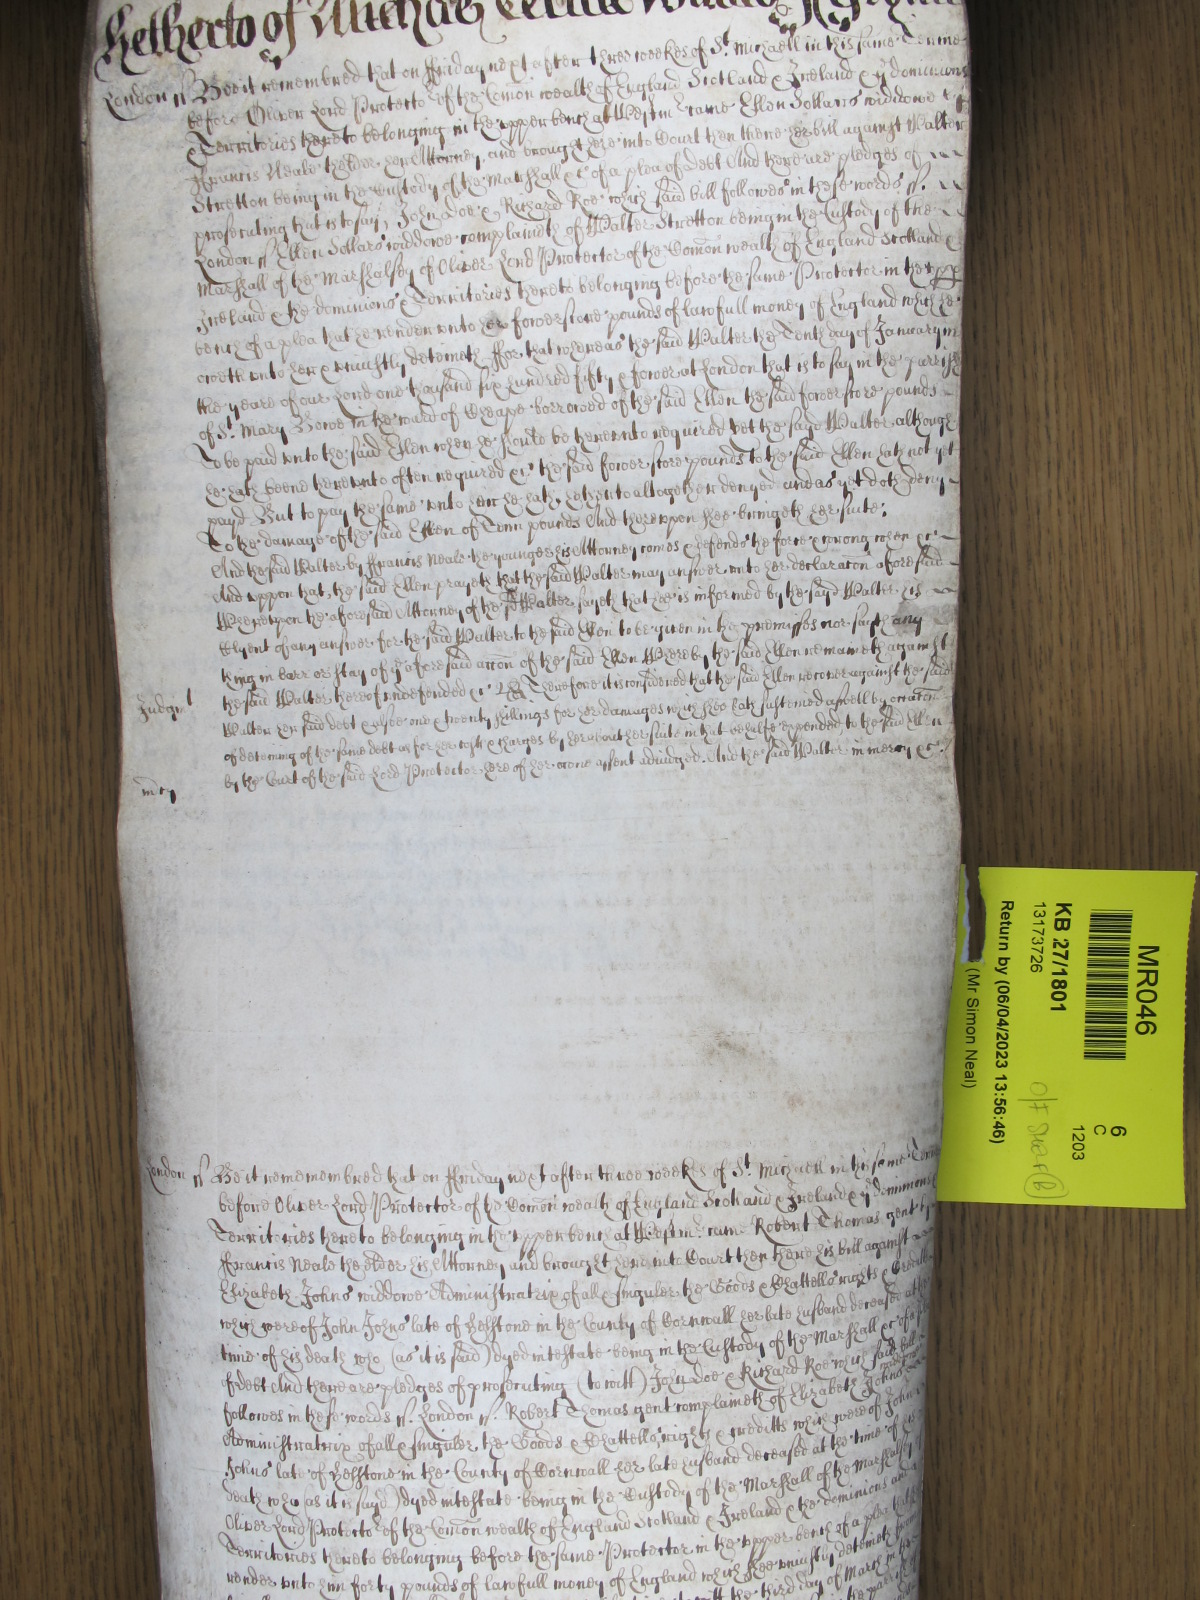 hetherto of Michas Terme
London ss Bee it remembred that on ffriday next after three weekes of St. Michaell in this same Terme
before Oliver Lord Protector of the Comon wealth of England Scotland & Ireland & ye dominions
& Territories thereto belonging in the upper bench at Westmr came Ellen Sollars widdowe by
ffrancis Neale the elder her Attorney and brought here into Court then there her bill against Walter
Stretton being in the Custody of the Marshall &c of a plea of Debt And there are pledges of
prosecuting that is to say, John Doe & Richard Roe which said bill followes in these words ss.
London ss Ellen Sollars widdowe complaineth of Walter Stretton being in the Custody of the
Marshall of the Marshalsey of Oliver Lord Protector of the Comon wealth of England Scotland &
Ireland & the dominions & Territories thereto belonging before the same Protector in the upp
bench of a plea that he render unto her fowerscore pounds of lawfull money of England which he
oweth unto her & uniustly deteineth ffor that whereas the said Walter the Tenth day of January in
the yeare of our Lord one thousand six hundred fifty & fower at London that is to say in the parrish
of St. Mary Bowe in the ward of Cheape borrowed of the said Ellen the said fowerscore pounds
To be paid unto the said Ellen when he should be thereunto required yet the sayd Walter although
he hath beene thereunto often required &c the said fowerscore pounds to the said Ellen hath not yet
payd But to pay the same unto her he hath hetherto altogether denyed and as yet doth deny
To the damage of the said Ellen of Tenn pounds And thereuppon shee bringeth her suite;
And the said Walter by ffrancis Neale the younger his Attorney comes & defends the force & wrong when &c
And uppon that, the said Ellen prayeth that the said Walter may answer unto her declaracon aforesaid
Whereuppon the aforesaid Attorney of the sd Walter sayeth that hee is informed by the sayd Walter his
Clyent of any answer for the said Walter to the said Ellen to be given in the premisses nor sayth any
thing in barr or stay of ye aforesaid accon of the said Ellen Whereby the said Ellen remaineth against
Judgmt the said Walter thereof undefended &c Therefore it is considered that the said Ellen recover against the said
Walter her said debt & alsoe one & twenty shillings for her damages which shee hath susteined aswell by occacon
of deteining of the same debt as for her costs & charges by her about her suite in that behalfe expended, to the said Ellen
mercy by the Court of the said Lord Protector here of her owne assent adiudged. And the said Walter in mercy &c.
London ss Be it rememembred that on ffriday next after three weekes of St. Michaell in this same Terme
before Oliver Lord Protector of the Comon wealth of England Scotland & Ireland & ye dominions
Territories thereto belonging in the upper bench at Westmr. came Robert Thomas gent by
ffrancis Neale the elder his Attorney and brought here into Court then there his bill against
Elizabeth Johns widdowe Administratrix of all & singuler the Goods & Chattells rights & Creditts
which were of John Johns late of Helstone in the County of Cornwall her late husband deceased at the
time of his death who (as it is said) dyed intestate being in the Custody of the Marshall &c of a plea
of debt And there are pledges of prosecuting (to witt) John Doe & Richard Roe which said bill
followes in these words ss. London ss. Robert Thomas gent complaineth of Elizabeth Johns
Administratrix of all & singuler the Goods & Chattells, rights & creditts which were of John
Johns late of Helstone in the County of Cornwall her late husband deceased at the time of his
death who (as it is sayd) dyed intestate being in the Custody of the Marshall of the Marshalsey
Oliver Lord Protector of the Comon wealth of England Scotland & Ireland & the dominions and
Territories thereto belonging before the same Protector in the upper bench of a plea that
render unto him forty pounds of lawfull money of England which shee uniustly deteineth
the third day of March in
MR046
6
C
1203
KB 27/1801
13173726
Return by (06/04/2023 13:56:46)
(Mr Simon Neal)